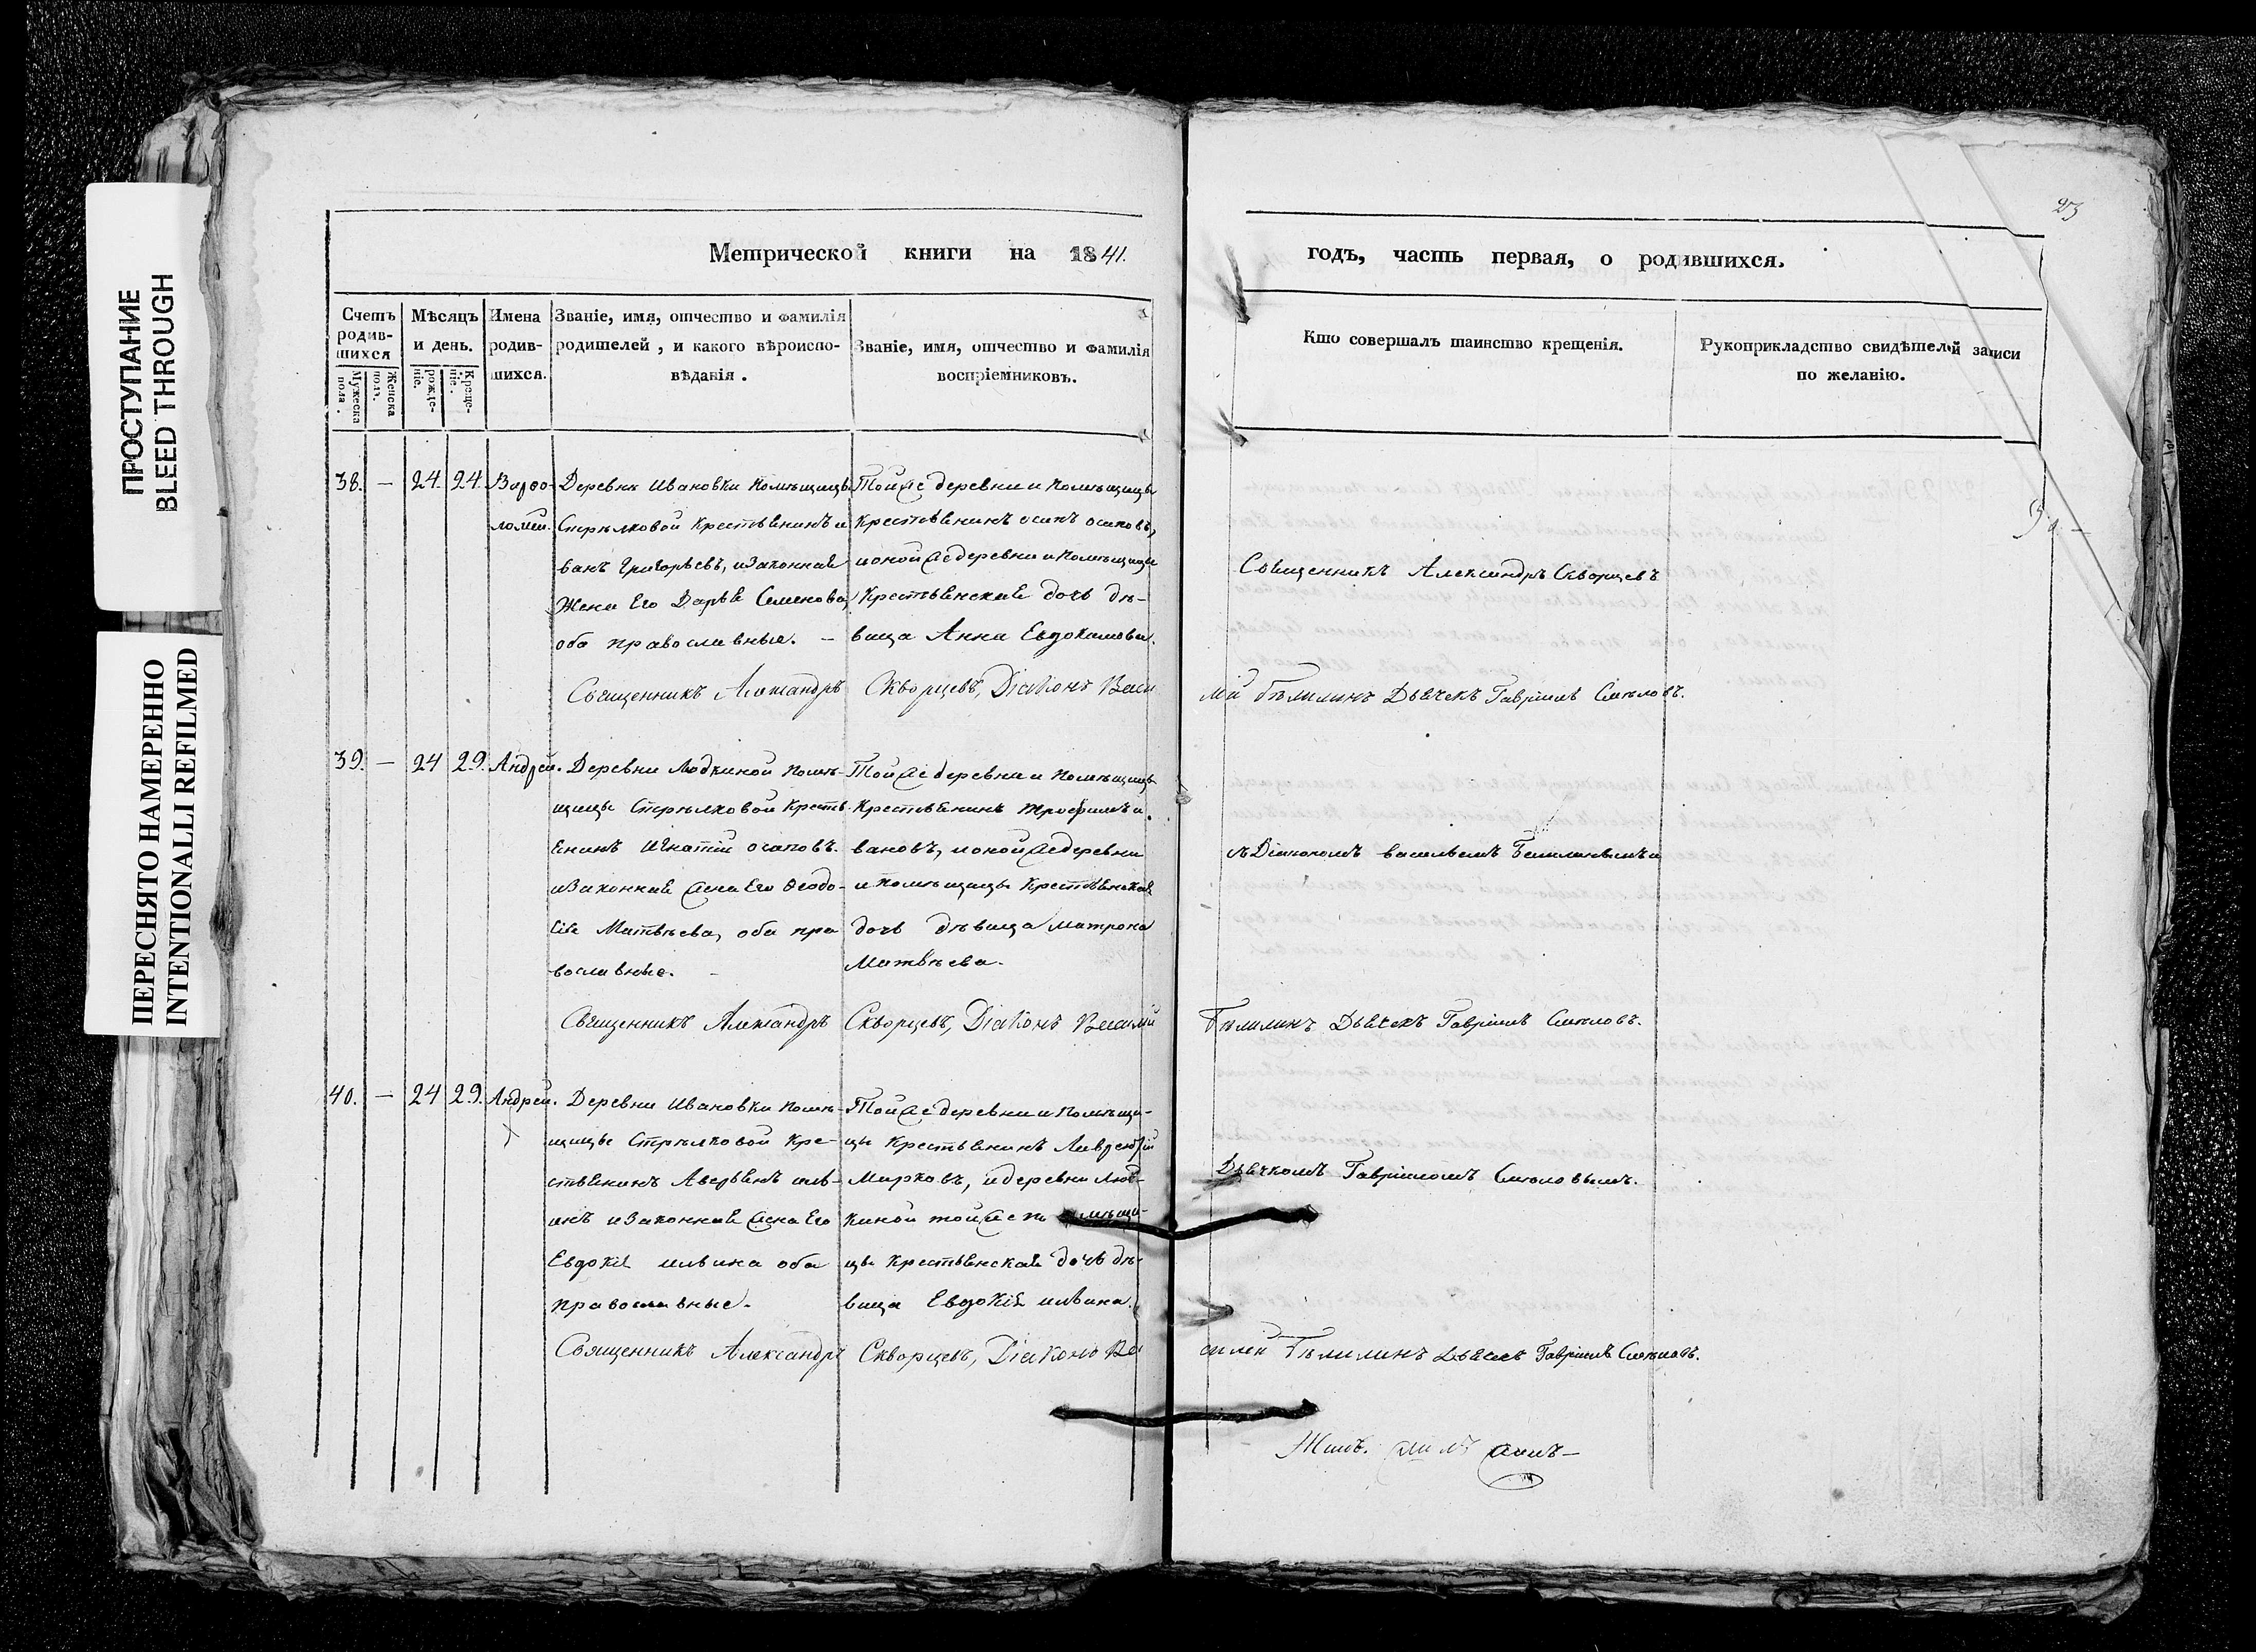 23
Метрической книги на 1841.
годъ, часть первая, о родившихся.
Счетъ родив-шихся
Мужеска пола.
Женска пола.
Мѣсяцъ и день.
рожде-нiе.
Креще-нiе.
Имена родив-шихся.
Званiе, имя, отчество и фамилiя
родителей, и какого вѣроиспо-
вѣданiя.
Званiе, имя, отчество и фамилiя
воспрiемниковъ.
Кто совершалъ таинство крещенiя.
Рукоприкладство свидѣтелей записи
по желанiю.
38. — 24. 24. Варѳо-
ломей.
Деревни Ивановки Помѣщицы
Стрѣлковой Крестьянинъ и
ванъ Григорьевъ, и Законная
Жена Его Дарья Семенова,
оба православные. —
Тойже деревни и Помѣщицы
Крестьянинъ осипъ осиповъ,
и оной же деревни и Помѣщицы
Крестьянская дочь дѣ-
вица Анна Евдокимова.
Священникъ Александръ Скворцевъ
Священникъ Александръ Скворцевъ, Дiаконъ Васи
лiй Бѣлилинъ Дьячекъ Гаврiилъ Смѣловъ.
39. — 24 29. Андрей.
Деревни Людкиной помѣ-
щицы Стрѣлковой Кресть-
янинъ Игнатiй осиповъ.
и Законная жена Его Ѳеодо-
сiя Матвѣева, оба пра
вославные. —
Тойже деревни и Помѣщицы
Крестьянинъ Трофимъ и.
вановъ, и оной же деревни
и помѣщицы Крестьянская
дочь дѣвица Матрона
Матвѣева.
съ Дiакономъ васильемъ Бѣлилинымъ и
Священникъ Александръ Скворцевъ, Дiаконъ Василiй
Бѣлилинъ Дьячекъ Гаврiилъ Смѣловъ.
40. — 24 29. Андрей.
Деревни Ивановки помѣ-
щицы Стрѣлковой Кре-
стьянинъ Аверьянъ иль-
инъ и Законная жена Его
Евдокiя ильина оба
православные.
Тойже деревни и Помѣщи-
цы Крестьянинъ Лаврентiй
Марковъ, и деревни Люд-
киной тойже помѣщи-
цы Крестьянская дочь дѣ-
вица Евдокiя ильина.
Дьячкомъ Гаврiиломъ Смѣловымъ.
Священникъ Александръ Скворцевъ, Дiаконъ Ва
силей Бѣлилинъ Дьячекъ Гаврiилъ Смѣловъ.
ПРОСТУПАНИЕ
BLEED THROUGH
ПЕРЕСНЯТО НАМЕРЕННО
INTENTIONALLI REFILMED